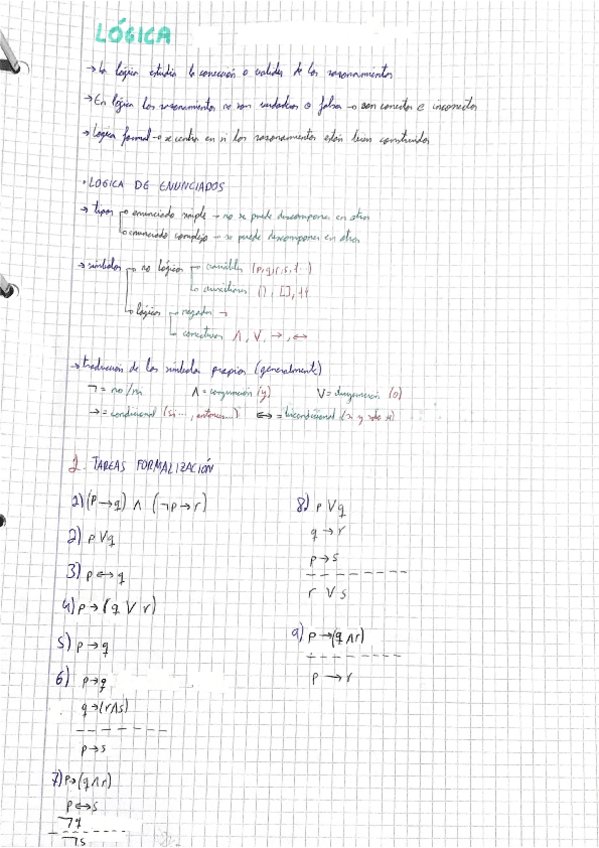 LÓGICA
→ La lógica estudia la corrección o validez de los razonamientos
→ En lógica los razonamientos no son verdaderos o falsos → son correctos e incorrectos
→ Lógica formal → se centra en si los razonamientos están bien construidos
• LOGICA DE ENUNCIADOS
→ tipos → enunciado simple → no se puede descomponer en otros
→ enunciado complejo → se puede descomponer en otros
→ símbolos → no lógicos → variables (p,q,r,s,t...)
→ auxiliares (), [], {}
→ lógicos → negador ¬
→ conectivas ∧, ∨, →, ↔
→ traducción de los símbolos propios (generalmente)
¬ = no/ni ∧ = conjunción (y) ∨ = disyunción (o)
→ = condicional (si..., entonces...) ↔ = bicondicional (si y solo si)
1. TAREAS FORMALIZACIÓN
1) (p → q) ∧ (¬p → r)
2) p ∨ q
3) p ↔ q
4) p → (q ∨ r)
5) p → q
6) p → q
q → (r ∧ s)
- - - - - - -
p → s
7) p → (q ∧ r)
p ↔ s
¬q
- - - - - - -
¬s
8) p ∨ q
q → r
p → s
- - - - - - - -
r ∨ s
9) p → (q ∧ r)
- - - - - - - -
p → r